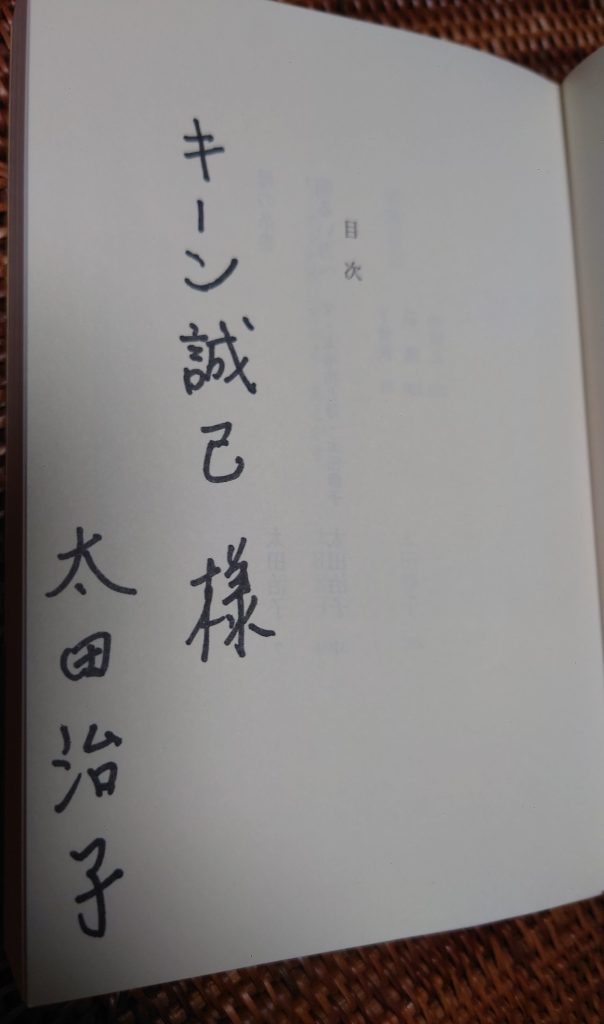 目次
キーン誠己様
太田治子